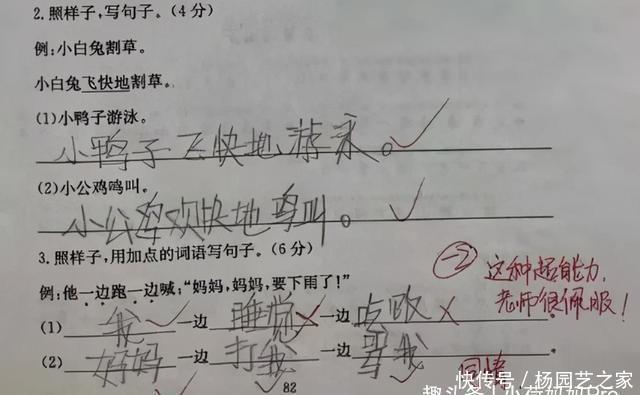 2.照样子,写句子。(4分)
例:小白兔割草。
小白兔飞快地割草。
(1)小鸭子游泳。
小鸭子飞快地游泳。
(2)小公鸡鸣叫。
小公鸡欢快地鸣叫。
3.照样子,用加点的词语写句子。(6分)
-2 这种超能力,
老师很佩服!
例:他一边跑一边喊:“妈妈,妈妈,要下雨了!”
(1) 我 一边 睡觉 一边 吃饭 。
(2) 妈妈 一边 打我 一边 骂我 。
同情
82
快传号/杨园艺之家